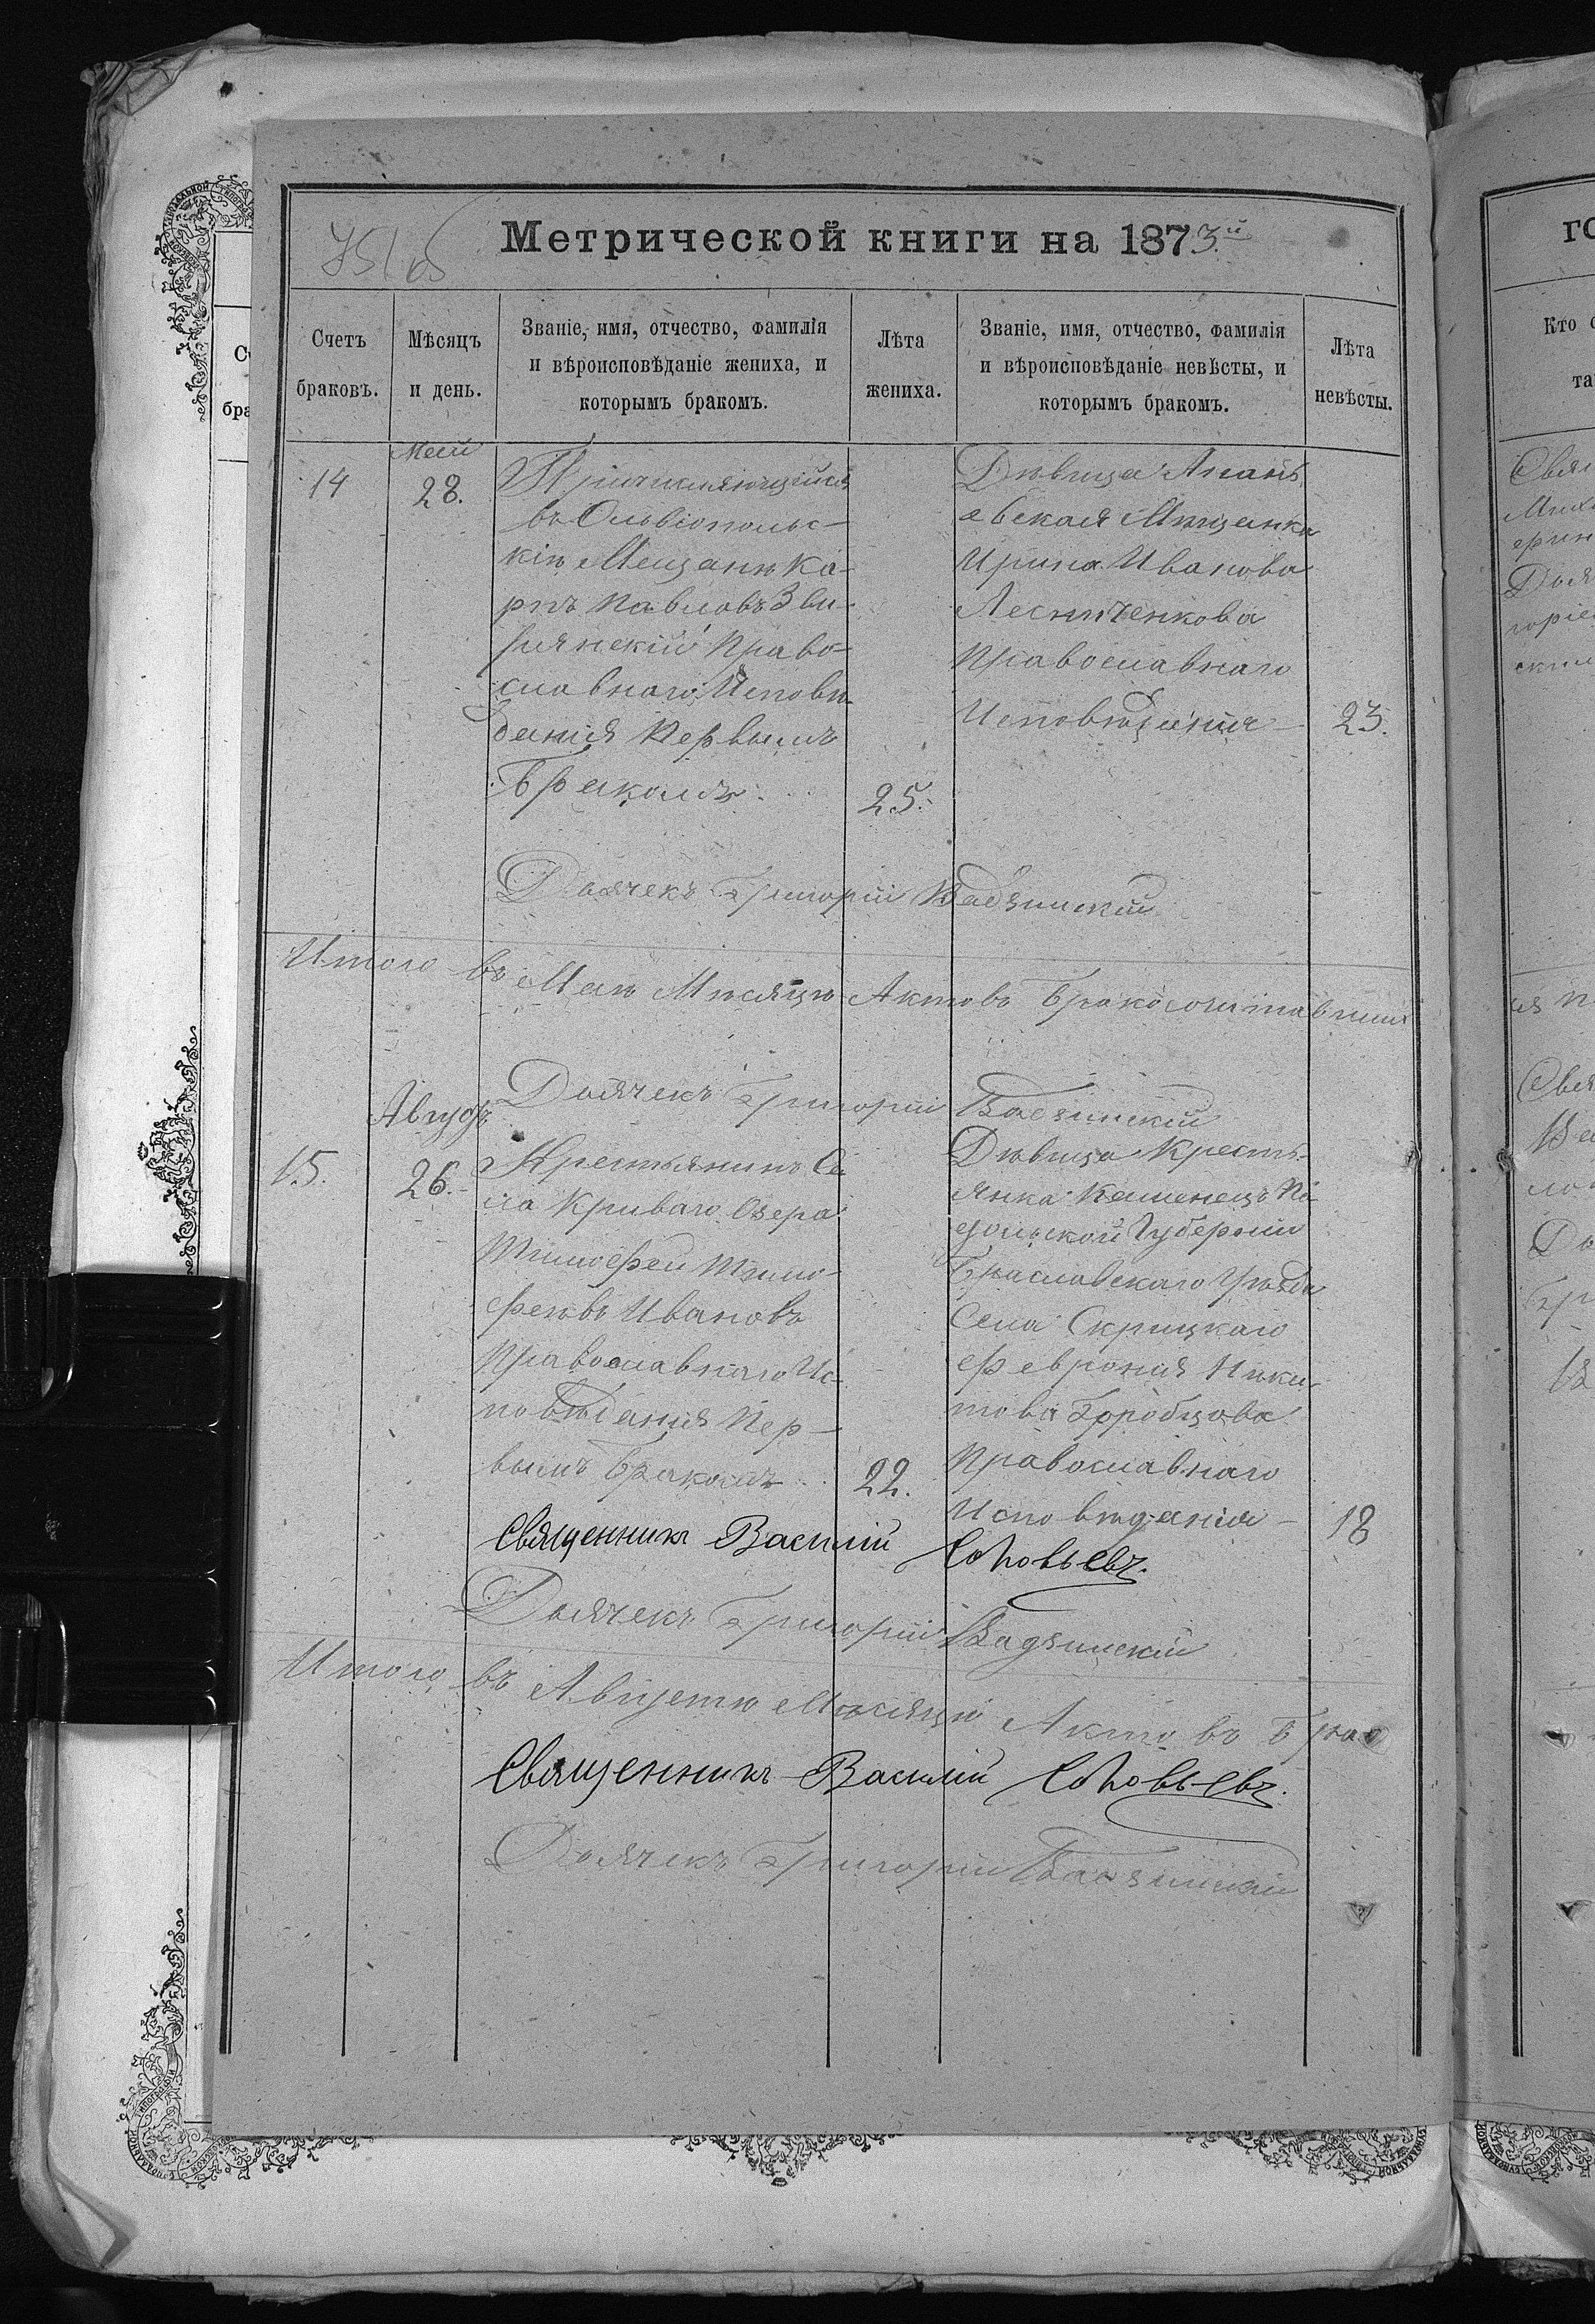 Метрической книги на 1873й
Счетъ браковъ.
Мѣсяцъ и день.
Званіе, имя, отчество, фамилія
и вѣроисповѣданіе жениха, и
которымъ бракомъ.
Лѣта жениха.
Званіе, имя, отчество, фамилія
и вѣроисповѣданіе невѣсты, и
которымъ бракомъ.
Лѣта невѣсты.
Маій
14
28.
Причисляющійся
въ Ольвіопольс-
кіе Мещане Ка-
рпъ Павловъ
Право-
славнаго Исповѣ-
данія Первымъ
Бракомъ.
25.
Дѣвица Анань
евская Мѣщанка
Ирина Иванова
Лесниченкова
Православнаго
Исповѣданія
23.
Дьячекъ Григорій Вадзинскій
Итого въ Маѣ Мѣсяцѣ Актовъ Бракосочитавших
Дьячекъ Григорій Вадзинскій
Августъ
15.
26.
Крестьянинъ Се
ла Криваго Озера
Тимофей Тимо-
феевъ Ивановъ
Православнаго Ис-
повѣданія Пер-
вымъ Бракомъ
22.
Дѣвица Кресть-
янка Каменецъ По-
дольской Губерніи
Браславскаго Уѣзда
Села Скрицкаго
Февронія Ники-
това Горобцова
Православнаго
Исповѣданія
18
Священникъ Василій Соловьевъ.
Дьячекъ Григорій Вадзинскій
Итого въ Августѣ Мѣсяцѣ Актовъ Брако
Священникъ Василій Соловьевъ.
Дьячекъ Григорій Вадзинскій